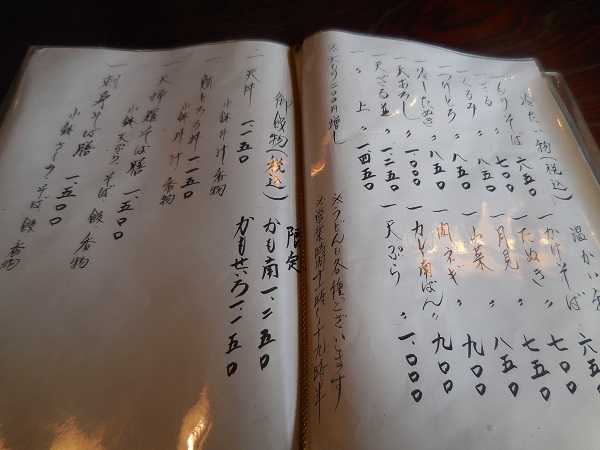 冷たい物(税込)
一 もりそば 六五〇
一 ざる 〃 七〇〇
一 くるみ 〃 八五〇
一 つけとろ 〃 八五〇
一 冷したぬき 〃 八五〇
一 天おろし 〃 一、〇〇〇
一 天ざる並 〃 一、二五〇
一 〃 上 〃 一、四五〇
※大もり二〇〇円増し
温かい
一 かけそば 六五〇
一 たぬき 〃 七五〇
一 月見 〃 七五〇
一 山菜 〃 八五〇
一 肉ネギ 〃 九〇〇
一 カレー南ばん 〃 九〇〇
一 天ぷら 〃 一、〇〇〇
※うどんも各種ございます
※営業時間十一時〜十九時半
御飯物(税込)
一 天丼 一、一五〇
小鉢 丼 汁 香物
とろろ丼 一、一五〇
小鉢 丼 汁 香物
一 天婦羅そば膳 一、五〇〇
小鉢 天ぷら そば 飯 香物
一 刺身そば膳 一、五〇〇
小鉢 さしみ そば 飯 香物
限定
かも南 一、二五〇
かもせいろ 一、一五〇